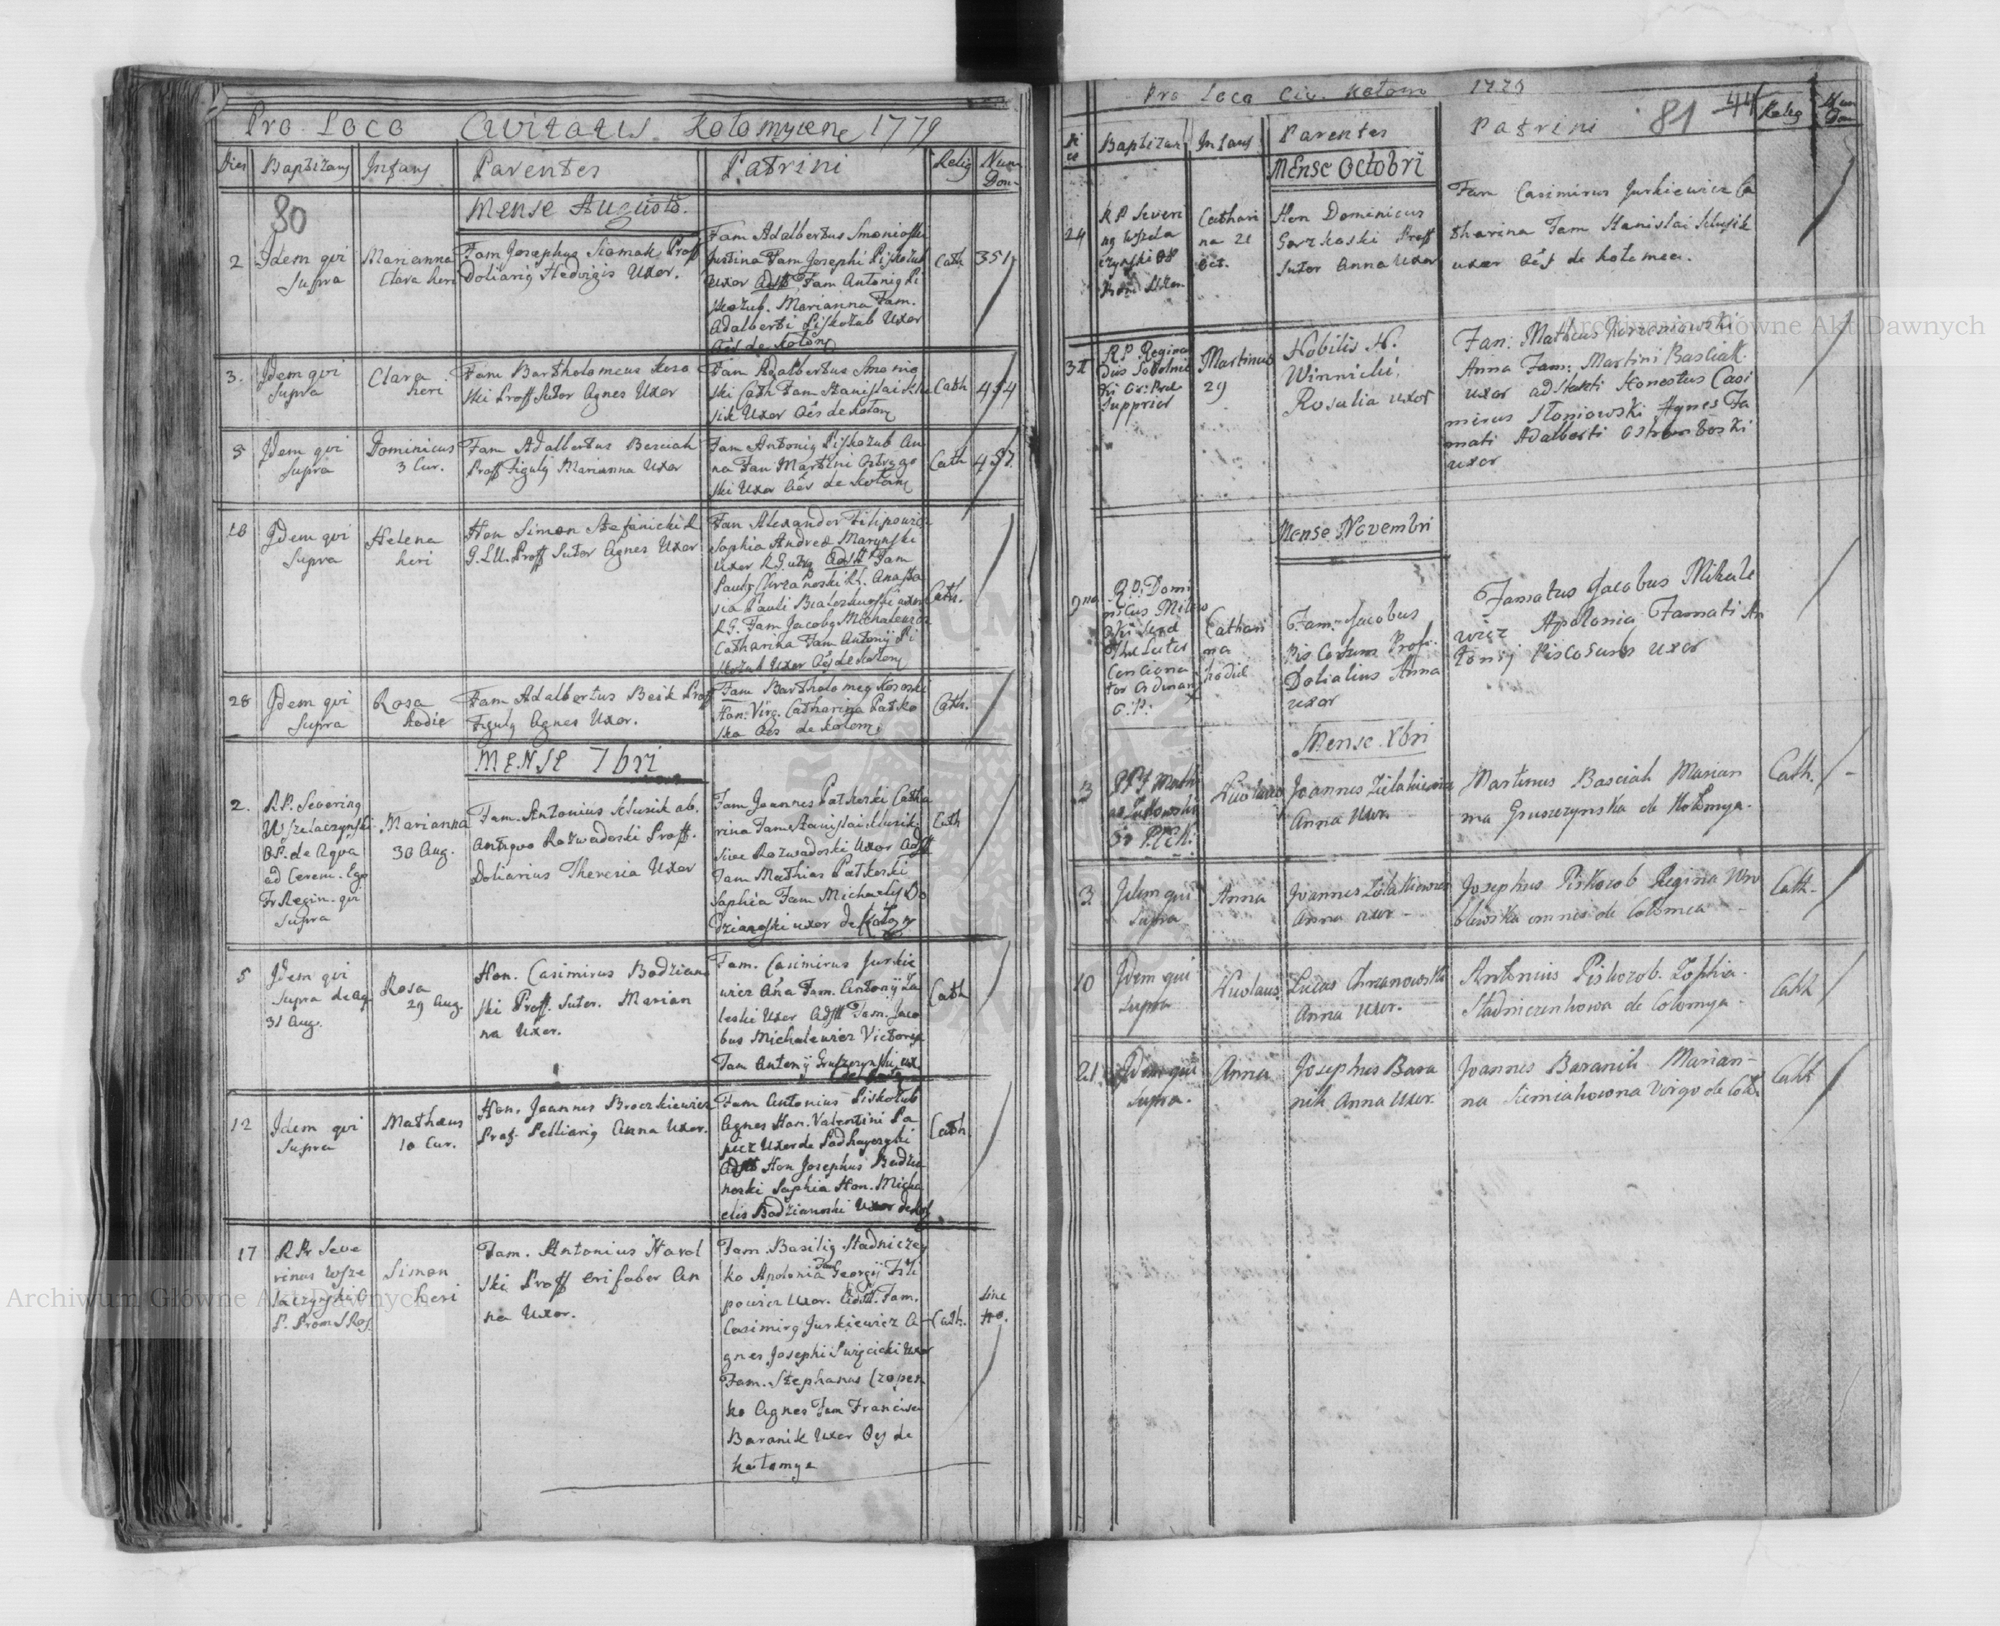 Pro Loco Civitatis Kołomyiene 1779
Dies Baptizans Infans Parentes Patrini Relig Num Dom
80
Mense Augusto
2 Idem qvi Supra
Marianna Clara heri
Fam Josephus Siomak Proff
Doliarig Hedvigis Uxor.
Fam Adalbertus Smonioski
Justina Fam Josephi Piskozub
Uxor Adst Fam Antonig Pi
skozub. Marianna Fam.
Adalberti Piskozub Uxor
Oẽs de Kołom
Cath
351
3. Idem qvi Supra
Clara heri
Fam Bartholomeus Koso
ski Proff Sutor Agnes Uxor
Fam Adalbertus Smonio
ski Cath Fam Stanislai Klu
sik Uxor Oẽs de Kołom
Cath
454
5 Idem qvi Supra
Dominicus 3 Cur.
Fam Adalbertus Besciak
Proff Figulg Marianna Uxor
Fam Antonig Piskozub An
na Fam Martini Ostrogo
ski Uxor Oẽs de Kołom
Cath
457.
18 Idem qvi Supra
Helena heri
Hon Simon Stefanicki R
G. LU. Proff Sutor Agnes Uxor
Fam Alexander Filipowicz
Sophia Andreæ Marynski
Uxor R.G. utrq Adst Fam
Paulg Chrzanoski RL. Anasta
sia Pauli Bialoskurski uxor
R.G. Fam Jacobg Michalewicz
Catharina Fam Antonij Pi
skozub Uxor Oẽs de Kołom
Cath.
28 Idem qvi Supra
Rosa hodie
Fam Adalbertus Besik Proff
Figulg Agnes Uxor.
Fam Bartholomeg Kososki
Hon. Virg. Catharina Patko
ska Oẽs de Kołom
Cath.
MENSE 7bri
2. RP. Severing
Wszelaczynski
OP. de Aqva
ad Cerem. Ego
Fr Regin. qvi
Supra
Marianna
30 Aug.
Fam. Antonius Klusik ab.
antiqvo Rozwadoski Proff.
Doliarius Theresia Uxor
Fam Joannes Patkoski Catha
rina Fam Stanislai Klusik
sive Rozwadoski Uxor Adst
Fam Mathias Patkoski
Sophia Fam Michaelis Bo
dzianoski uxor de Kołomy
Cath
5 Idem qvi
Supra de aq
31 Aug.
Rosa
29 Aug.
Hon. Casimirus Bodziano
ski Proff. Sutor. Marian
na Uxor.
Fam. Casimirus Jurkie
wicz Aña Fam. Antonij Za
leski Uxor Adstt Fam. Jaco
bus Michalewicz Victoria
Fam Antonij Gruszczynski ux
de Kołom
Cath
12 Idem qvi
Supra
Mathæus
10 Cur.
Hon. Joannes Broczkiewicz
Prof. Pelliarig Anna Uxor.
Fam Antonius Piskozub
Agnes Hon. Valentini Pa
piez Uxor de Podhayczyki
Adstt Hon Josephus Bodzia
noski Sophia Hon. Micha
elis Bodzianoski Uxor de Koł
Cath
17 RPr Seve
rinus Wsze
laczynski O
P. Prom S Ros.
Simon
heri
Fam. Antonius Karol
ski Proff Erifaber An
na Uxor.
Fam. Basilig Stadniczen
ko Apolonia Fam Georgij Fili
powicz Uxor. Adstt. Fam.
Casimirg Jurkiewicz A
gnes Josephi Swięcicki Uxor
Fam. Stephanus Czopen
ko Agnes Fam Francisci
Baranik Uxor Oẽs de
Kołomya
Cath.
Sine
No.
Pro Loco Civ. Kołom 1779
81 44
Dies Baptizans Infans Parentes Patrini Relig Num Dom
Mense Octobri
24 RP Severi
ng Wszela
czynski OP
Prom SRosa.
Cathari
na 21
Oct.
Hon Dominicus
Gorzkoski Proff
Sutor Anna Uxor
Fam Casimirus Jurkiewicz Ca
tharina Fam Stanislai Klusik
uxor Oẽs de Kołomea.
31 R.P. Regina
dus Sokolnic
ki Or: Præd
Supprior
Martinus
29
Nobilis N.
Winnicki
Rosalia uxor
Fam: Matheus Korzeniowski
Anna Fam: Martini Basciak
uxor adstanti Honestus Casi
mirus Słoniowski Agnes Fa
mati Adalberti Ostrowski
uxor
Mense Novembri
9na R.P. Domi
nicus Milew
ski
Conciona
tor Ordinari
O.P.
Cathari
na
hodie
Fam. Jacobus
Prof.
Doliarius Anna
uxor
Famatus Jacobus Mikale
wicz Apolonia Famati An
tonij Piscosub uxor
Mense Xbri
3 RPF Math
Żukowski
Or P.
Nicolaus
Joannes Zielakiewicz
Anna Uxor.
Martinus Basciak Marian
na Gruszczynska de Kołomya.
Cath.
3 Idem qui
Supra
Anna
Joannes Zielakiewicz
Anna uxor
Josephus Piskozob Regina Wro
blewska omnes de Colomea
Cath.
10 Idem qui
Supra
Nicolaus
Lucas Chrzanowski
Anna Uxor.
Antonius Piskozob. Zophia
Stadniczenkowa de Colomya.
Cath
21 Idem qui
Supra.
Anna
Josephus Bara
nik Anna Uxor.
Joannes Baranik Marian-
na Siemiakowna Virgo de Colo
Cath
Archiwum Główne Akt Dawnych
Archiwum Główne Akt Dawnych